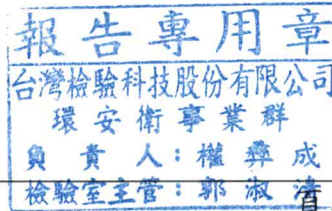 報告專用章
台灣檢驗科技股份有限公司
環安衛事業群
負責人：楊彝成
檢驗室主管：郭淑清
頁